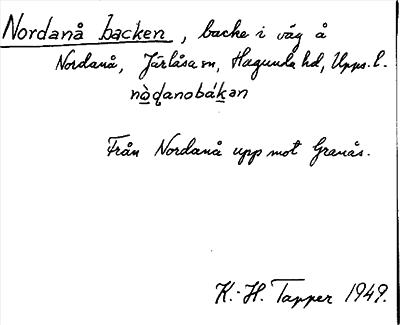 Nordanå backen, backe i väg å
Nordanå, Järlåsa sn, Hagunda hd, Upps. l.
nòḏanobáḵən
Från Nordanå upp mot Granås.
K.-H. Tapper 1949.